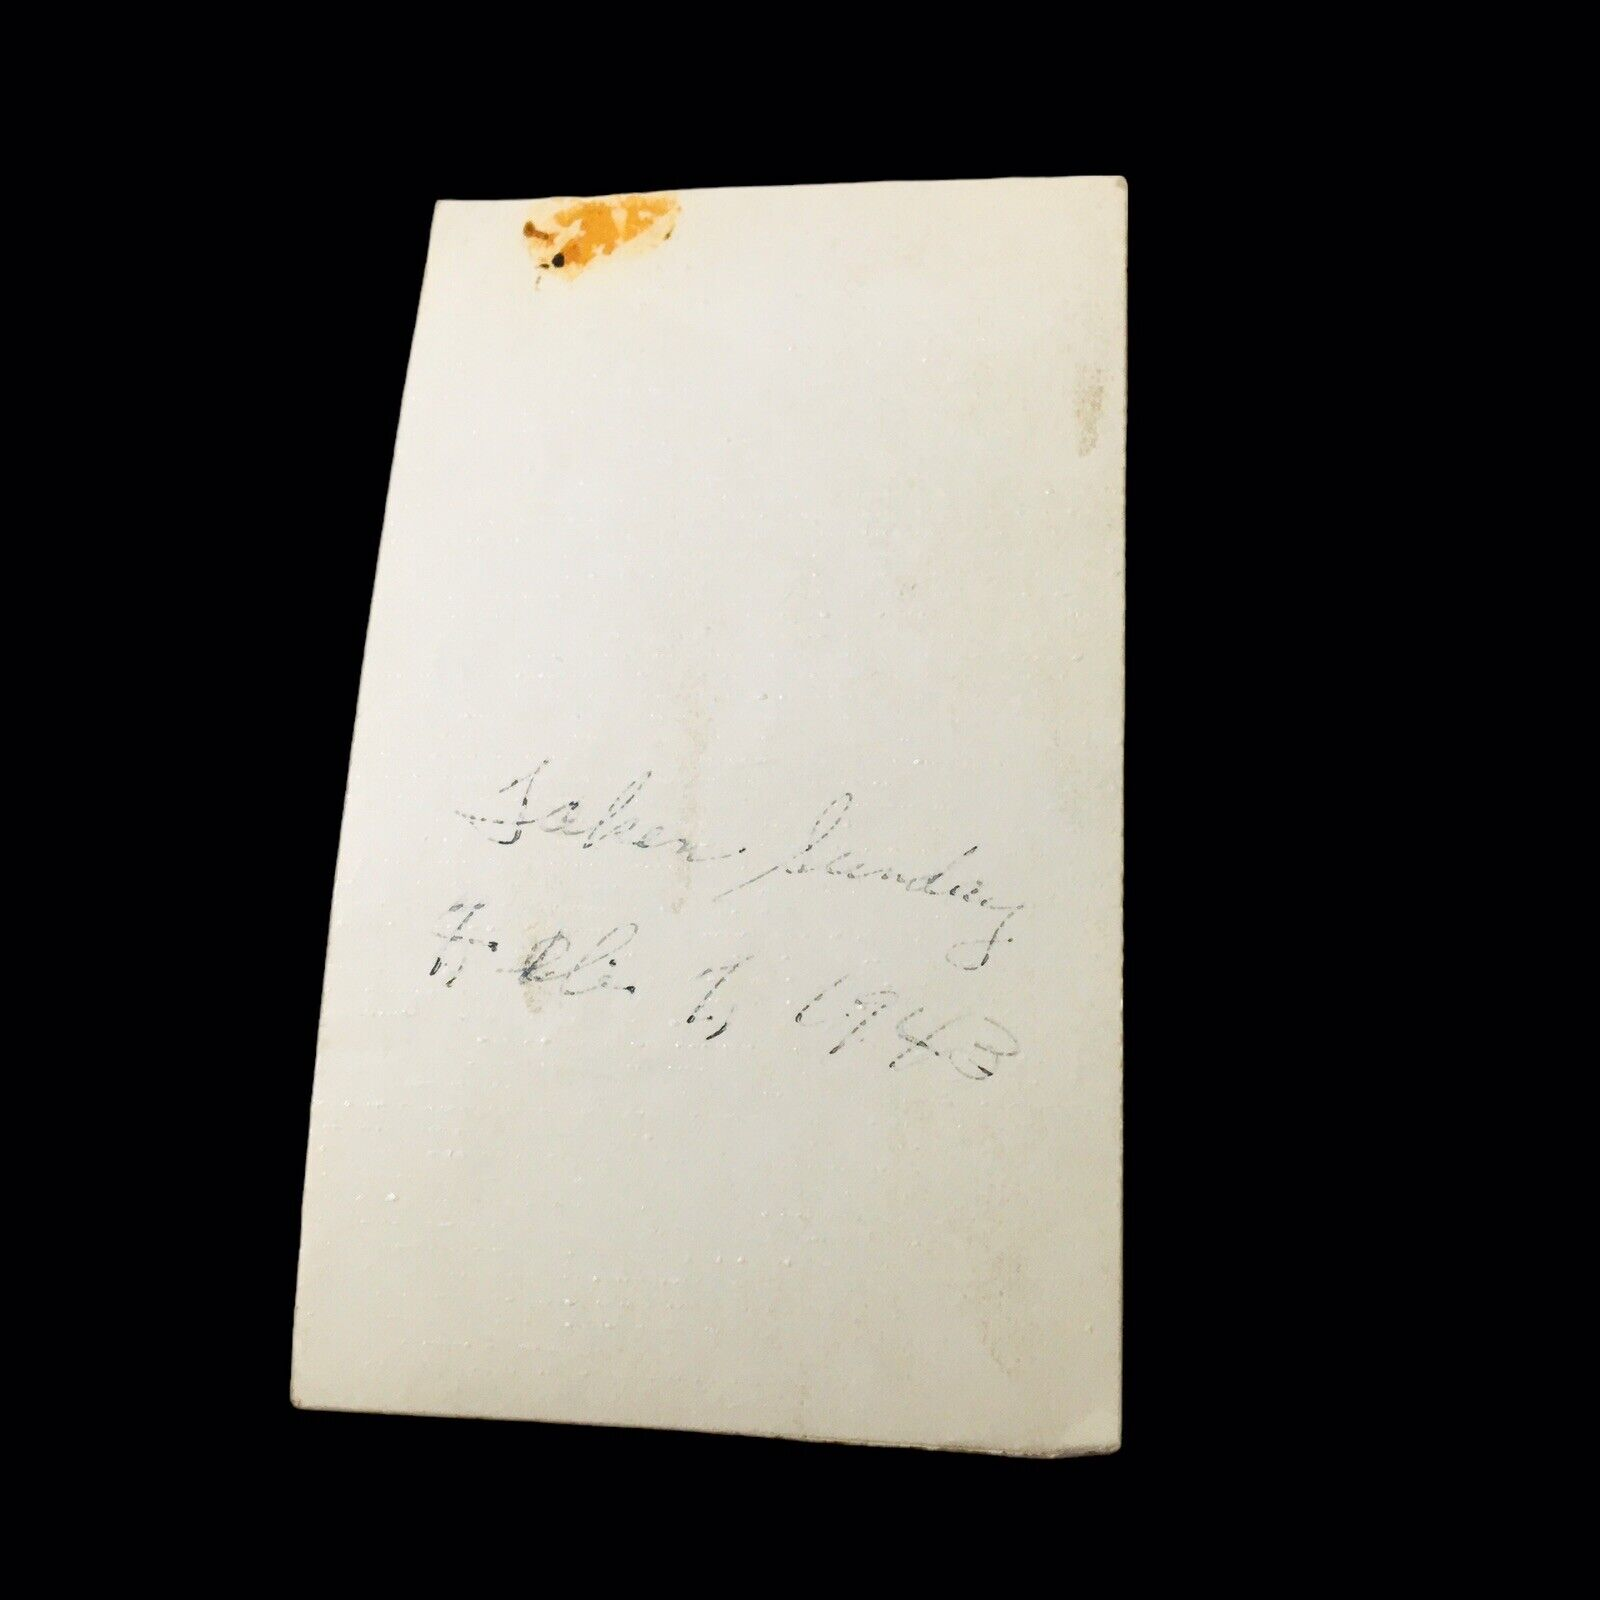 Taken Sunday
Feb. 7, 1943